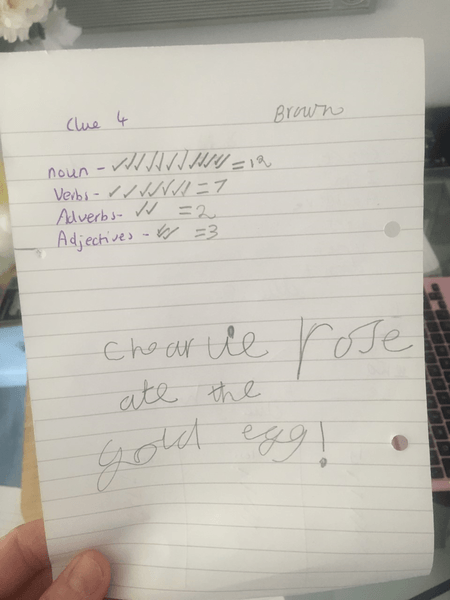 Clue 4
Brown
noun - ✓✓✓✓✓✓✓✓✓✓✓✓ = 12
Verbs - ✓✓✓✓✓✓✓ = 7
Adverbs- ✓✓ = 2
Adjectives - ✓✓✓ = 3
chearlie rose
ate the
gold egg!